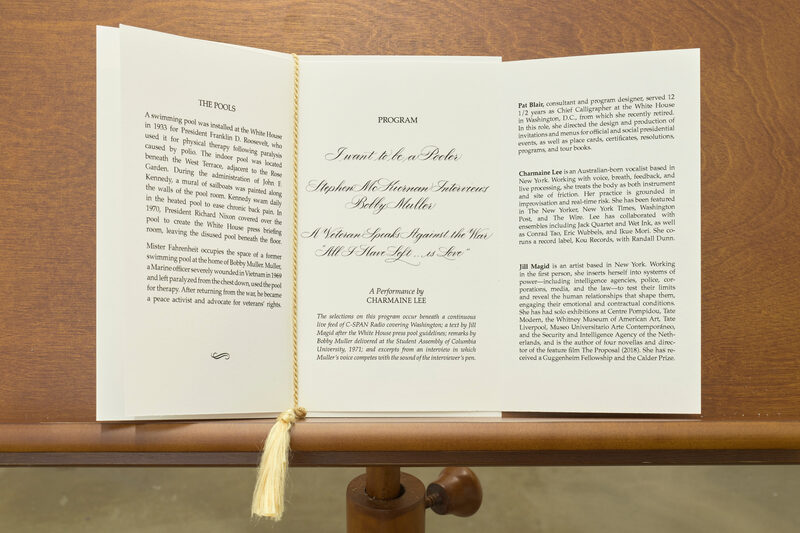 THE POOLS
A swimming pool was installed at the White House
in 1933 for President Franklin D. Roosevelt, who
used it for physical therapy following paralysis
caused by polio. The indoor pool was located
beneath the West Terrace, adjacent to the Rose
Garden. During the administration of John F.
Kennedy, a mural of sailboats was painted along
the walls of the pool room. Kennedy swam daily
in the heated pool to ease chronic back pain. In
1970, President Richard Nixon covered over the
pool to create the White House press briefing
room, leaving the disused pool beneath the floor.
Mister Fahrenheit occupies the space of a former
swimming pool at the home of Bobby Muller. Muller,
a Marine officer severely wounded in Vietnam in 1969
and left paralyzed from the chest down, used the pool
for therapy. After returning from the war, he became
a peace activist and advocate for veterans' rights.
PROGRAM
I want to be a Pooler
Stephen McKiernan Interviews
Bobby Muller
A Veteran Speaks Against the War
"All I Have Left ... is Love"
A Performance by
CHARMAINE LEE
The selections on this program occur beneath a continuous
live feed of C-SPAN Radio covering Washington; a text by Jill
Magid after the White House press pool guidelines; remarks by
Bobby Muller delivered at the Student Assembly of Columbia
University, 1971; and excerpts from an interview in which
Muller's voice competes with the sound of the interviewer's pen.
Pat Blair, consultant and program designer, served 12
1/2 years as Chief Calligrapher at the White House
in Washington, D.C., from which she recently retired.
In this role, she directed the design and production of
invitations and menus for official and social presidential
events, as well as place cards, certificates, resolutions,
programs, and tour books.
Charmaine Lee is an Australian-born vocalist based in
New York. Working with voice, breath, feedback, and
live processing, she treats the body as both instrument
and site of friction. Her practice is grounded in
improvisation and real-time risk. She has been featured
in The New Yorker, New York Times, Washington
Post, and The Wire. Lee has collaborated with
ensembles including Jack Quartet and Wet Ink, as well
as Conrad Tao, Eric Wubbels, and Ikue Mori. She co-
runs a record label, Kou Records, with Randall Dunn.
Jill Magid is an artist based in New York. Working
in the first person, she inserts herself into systems of
power—including intelligence agencies, police, cor-
porations, media, and the law—to test their limits
and reveal the human relationships that shape them,
engaging their emotional and contractual conditions.
She has had solo exhibitions at Centre Pompidou, Tate
Modern, the Whitney Museum of American Art, Tate
Liverpool, Museo Universitario Arte Contemporáneo,
and the Security and Intelligence Agency of the Neth-
erlands, and is the author of four novellas and direc-
tor of the feature film The Proposal (2018). She has re-
ceived a Guggenheim Fellowship and the Calder Prize.